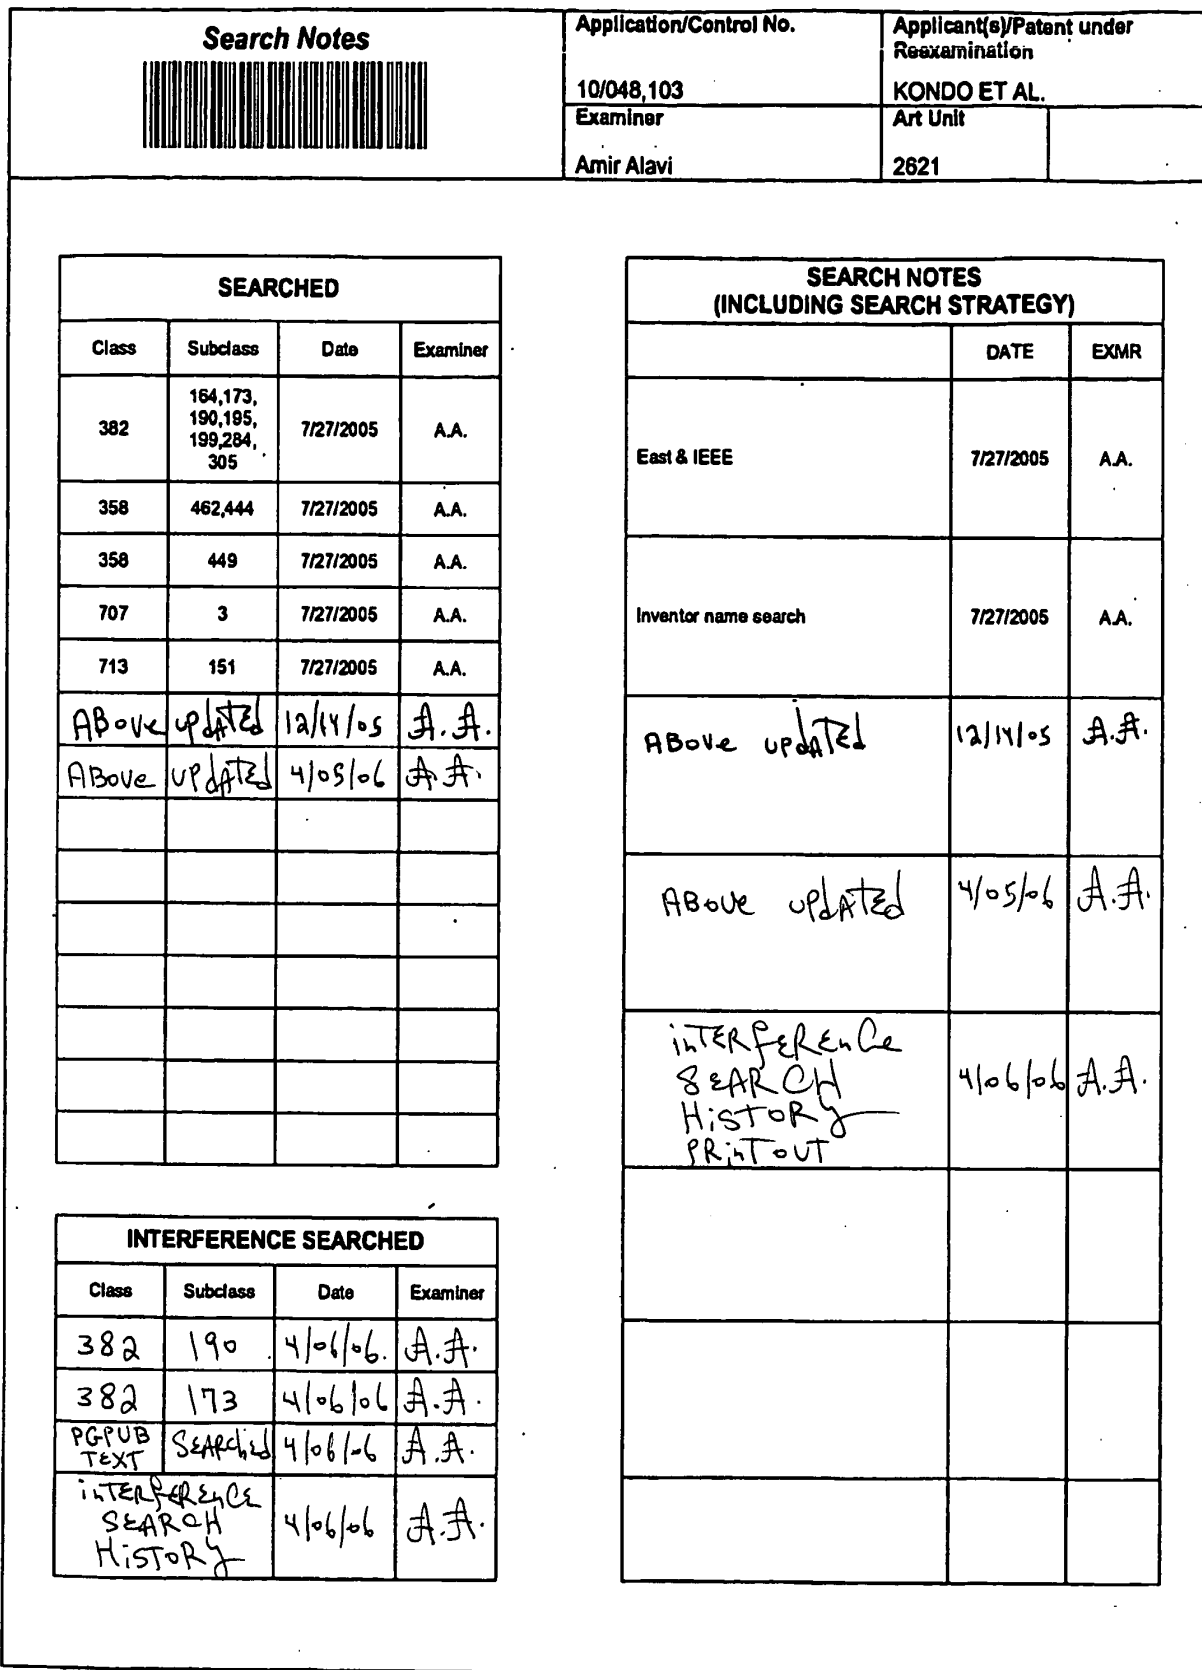 Search Notes
Application/Control No.
10/048,103
Applicant(s)/Patent under
Reexamination
KONDO ET AL.
Examiner
Amir Alavi
Art Unit
2621
SEARCHED
Class Subclass Date Examiner
382 164,173, 190,195, 199,284, 305 7/27/2005 A.A.
358 462,444 7/27/2005 A.A.
358 449 7/27/2005 A.A.
707 3 7/27/2005 A.A.
713 151 7/27/2005 A.A.
ABove updATEd 12/14/05 A.A.
ABove updATEd 4/05/06 A.A.
INTERFERENCE SEARCHED
Class Subclass Date Examiner
382 190 4/06/06 A.A.
382 173 4/06/06 A.A.
PGPUB
TEXT SEARChEd 4/06/06 A.A.
inTERfEREnCE
SEARCH
HiSToRy 4/06/06 A.A.
SEARCH NOTES
(INCLUDING SEARCH STRATEGY)
DATE EXMR
East & IEEE 7/27/2005 A.A.
Inventor name search 7/27/2005 A.A.
ABove updATEd 12/14/05 A.A.
ABove updATEd 4/05/06 A.A.
inTERfEREnCe
SEARCH
HiSToRy
PRinTouT 4/06/06 A.A.